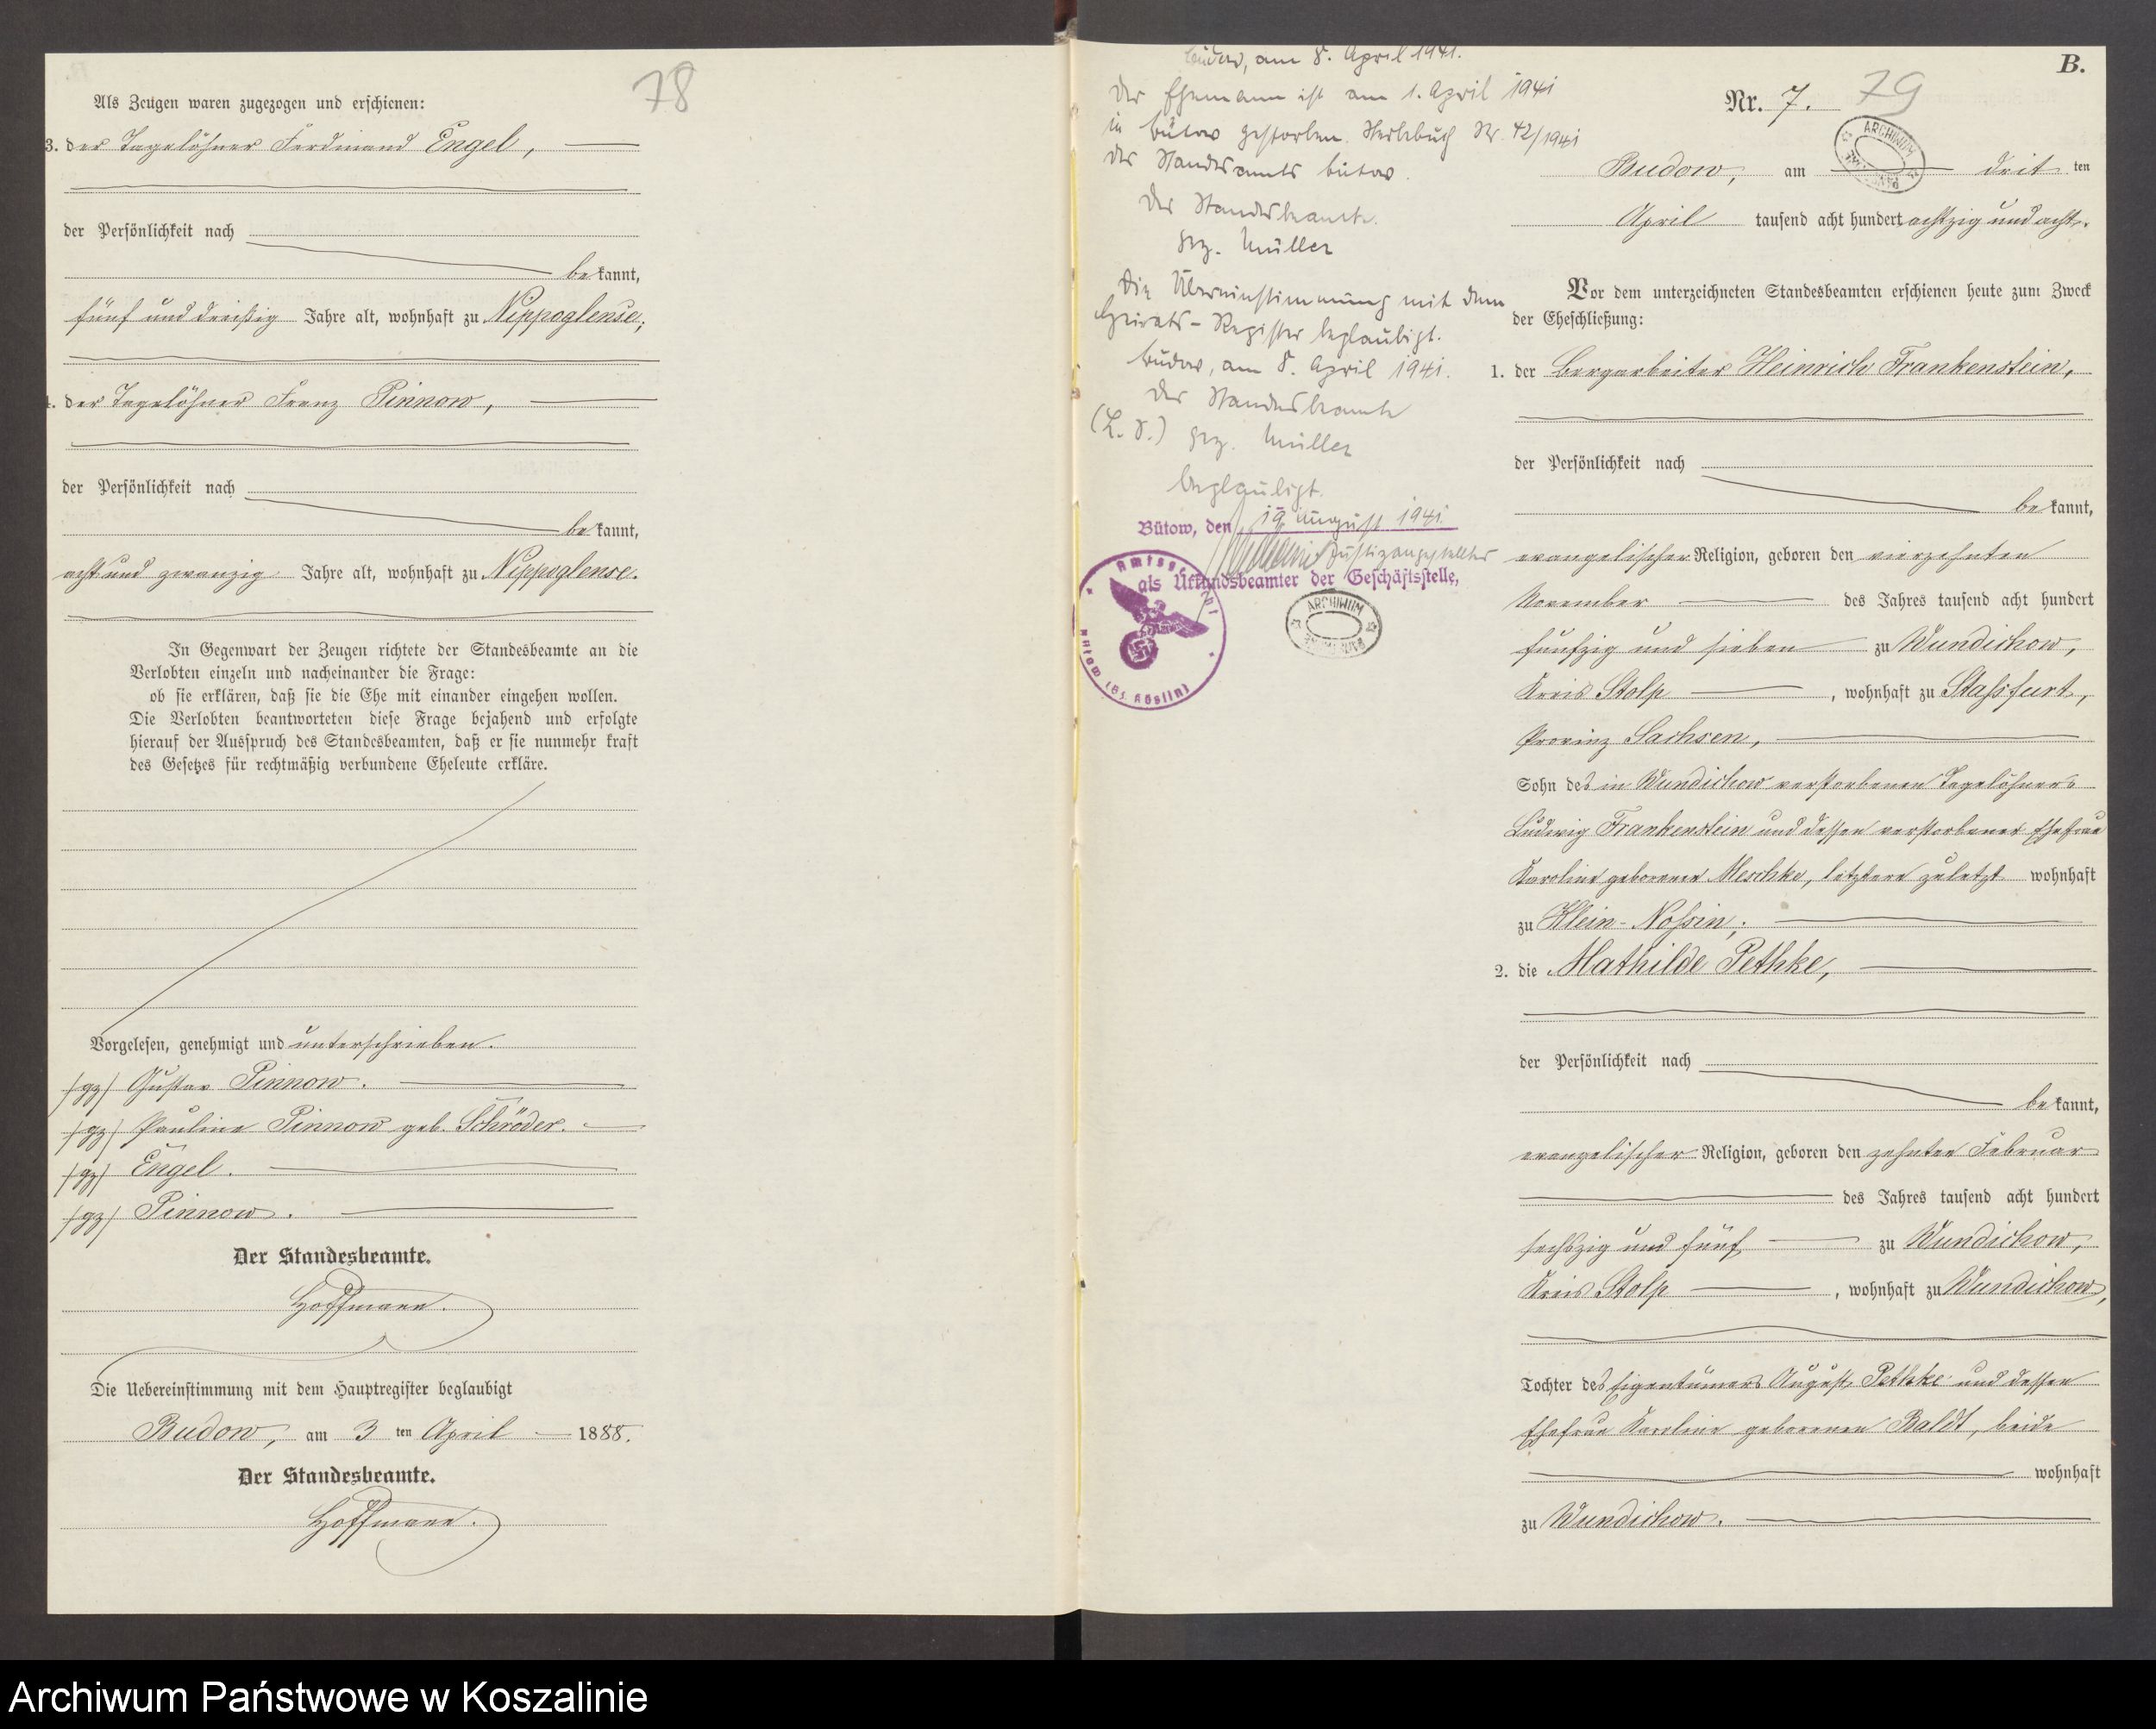 78
Als Zeugen waren zugezogen und erschienen:
3. der Tagelöhner Ferdinand Engel,
der Persönlichkeit nach
bekannt,
fünf und dreißig Jahre alt, wohnhaft zu Nippoglense,
4. der Tagelöhner Franz Pinnow,
der Persönlichkeit nach
bekannt,
acht und zwanzig Jahre alt, wohnhaft zu Nippoglense.
In Gegenwart der Zeugen richtete der Standesbeamte an die
Verlobten einzeln und nacheinander die Frage:
ob sie erklären, daß sie die Ehe mit einander eingehen wollen.
Die Verlobten beantworteten diese Frage bejahend und erfolgte
hierauf der Ausspruch des Standesbeamten, daß er sie nunmehr kraft
des Gesetzes für rechtmäßig verbundene Eheleute erkläre.
Vorgelesen, genehmigt und unterschrieben.
/gz/ Gustav Pinnow.
/gz/ Pauline Pinnow geb. Schröder.
/gz/ Engel.
/gz/ Pinnow.
Der Standesbeamte.
Hoffmann.
Die Uebereinstimmung mit dem Hauptregister beglaubigt
Budow, am 3 ten April 1888.
Der Standesbeamte.
Hoffmann.
Budow, am 8. April 1941.
Der Ehemann ist am 1. April 1941
in Bütow gestorben. Sterbebuch Nr. 42/1941
des Standesamts Bütow.
Der Standesbeamte.
gez. Müller
Die Übereinstimmung mit dem
Heirats-Register beglaubigt.
Budow, am 8. April 1941.
Der Standesbeamte
(L. S.) gez. Müller
Beglaubigt.
Bütow, den 19 August 1941
Justizangestellter
als Urkundsbeamter der Geschäftsstelle,
Amtsgericht
Bütow (Bz. Köslin)
ARCHIWUM
B.
Nr. 7. 79
ARCHIWUM
Budow, am drit ten
April tausend acht hundert achtzig und acht.
Vor dem unterzeichneten Standesbeamten erschienen heute zum Zweck
der Eheschließung:
1. der Bergarbeiter Heinrich Frankenstein,
der Persönlichkeit nach
bekannt,
evangelischer Religion, geboren den vierzehnten
November des Jahres tausend acht hundert
fünfzig und sieben zu Wundichow,
Kreis Stolp, wohnhaft zu Stassfurt,
Provinz Sachsen,
Sohn des in Wundichow verstorbenen Tagelöhners
Ludwig Frankenstein und dessen verstorbener Ehefrau
Karoline geborenen Meschke, letztere zuletzt wohnhaft
zu Klein-Nossin;
2. die Mathilde Pethke,
der Persönlichkeit nach
bekannt,
evangelischer Religion, geboren den zehnten Februar
des Jahres tausend acht hundert
sechszig und fünf zu Wundichow,
Kreis Stolp, wohnhaft zu Wundichow,
Tochter des Eigentümers August Pethke und dessen
Ehefrau Karoline geborenen Baldt, beide
wohnhaft
zu Wundichow.
Archiwum Państwowe w Koszalinie